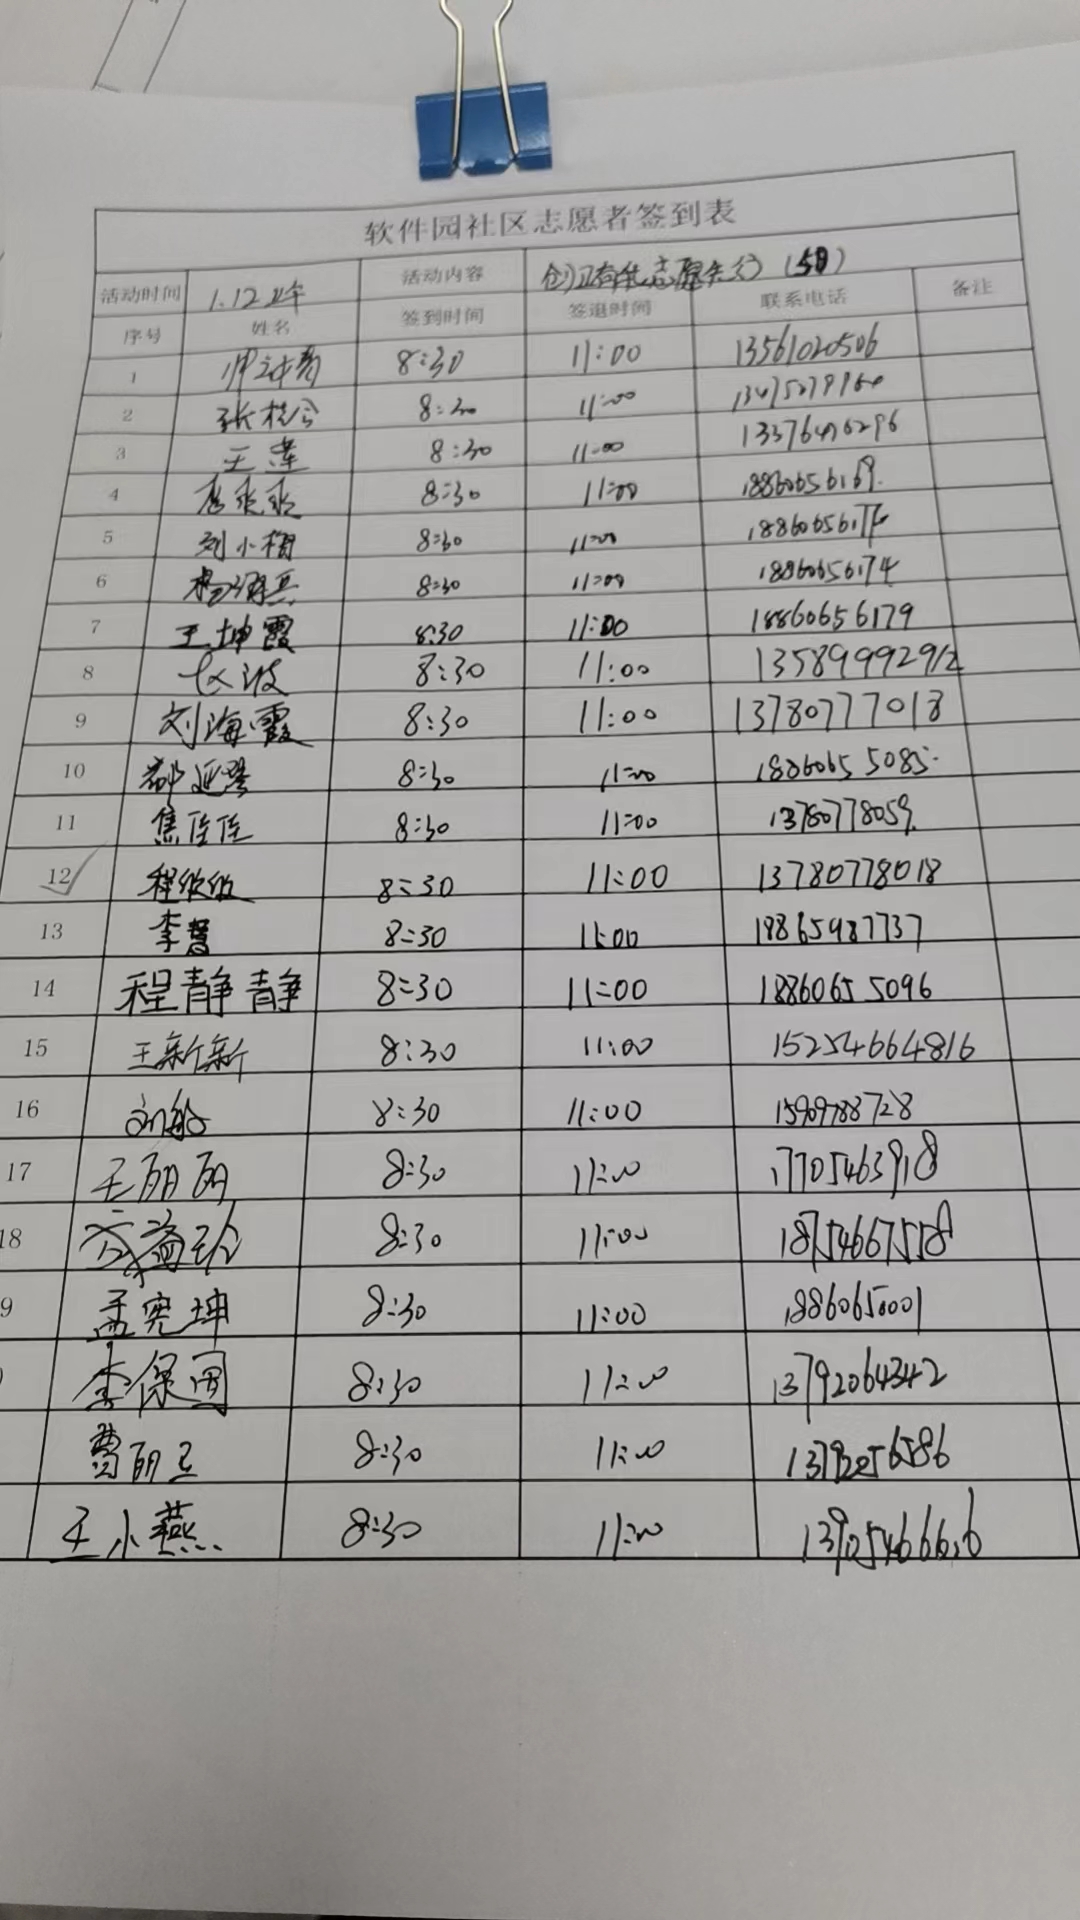 软件园社区志愿者签到表
活动时间 1.12 上午 活动内容 志愿
序号 姓名 签到时间 签退时间 联系电话 备注
1 8:30 11:00 13561020506
2 8:30 11:00
3 王莲 8:30 11:00
4 8:30 11:00 18860656169
5 刘小榴 8:30 11:00
6 8:30 11:00 18860656174
7 王坤霞 8:30 11:00 18860656179
8 8:30 11:00 13589992912
9 刘海霞 8:30 11:00 13780777018
10 8:30 11:00 18860655085
11 焦佳佳 8:30 11:00 13780778059
12 8:30 11:00 13780778018
13 李慧 8:30 11:00 18865987737
14 程静静 8:30 11:00 18860655096
15 王新新 8:30 11:00 15254664816
16 刘船 8:30 11:00 15909788728
17 王丽丽 8:30 11:00 17705463918
18 8:30 11:00 18754667558
9 孟宪坤 8:30 11:00 18860650001
李保国 8:30 11:00 13792064342
曹丽王 8:30 11:00
王小燕 8:30 11:00